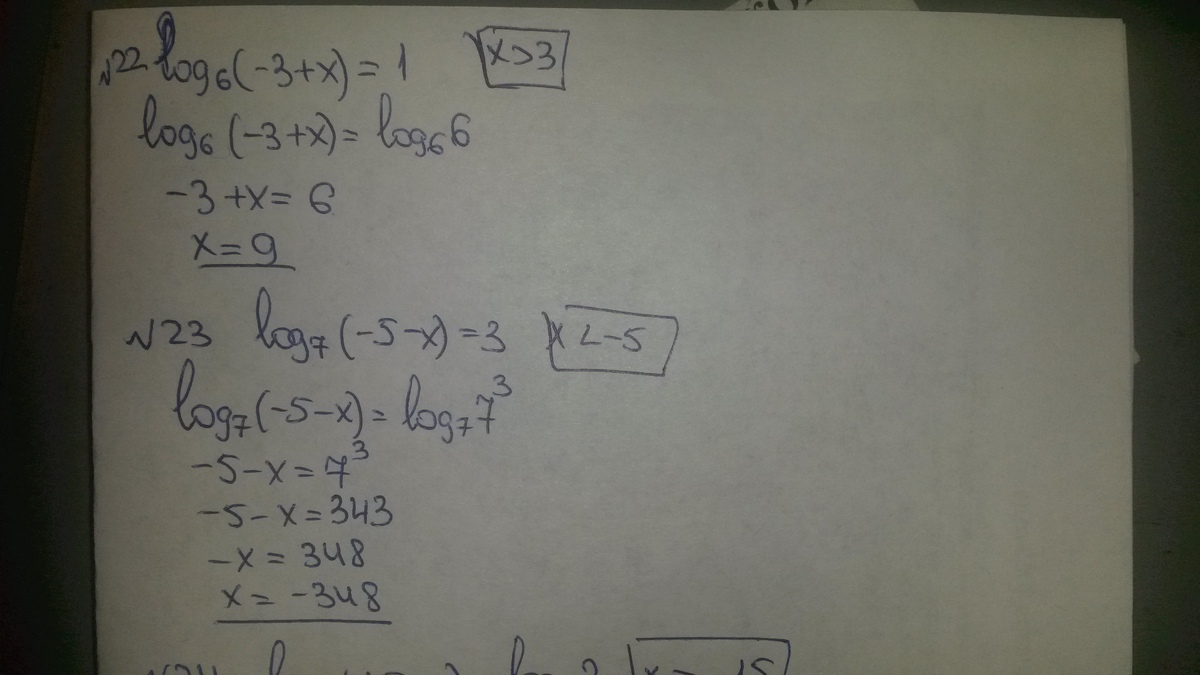 №22 log₆(-3+x) = 1 x>3
log₆(-3+x) = log₆6
-3+x = 6
x = 9
№23 log₇(-5-x) = 3 x<-5
log₇(-5-x) = log₇7³
-5-x = 7³
-5-x = 343
-x = 348
x = -348